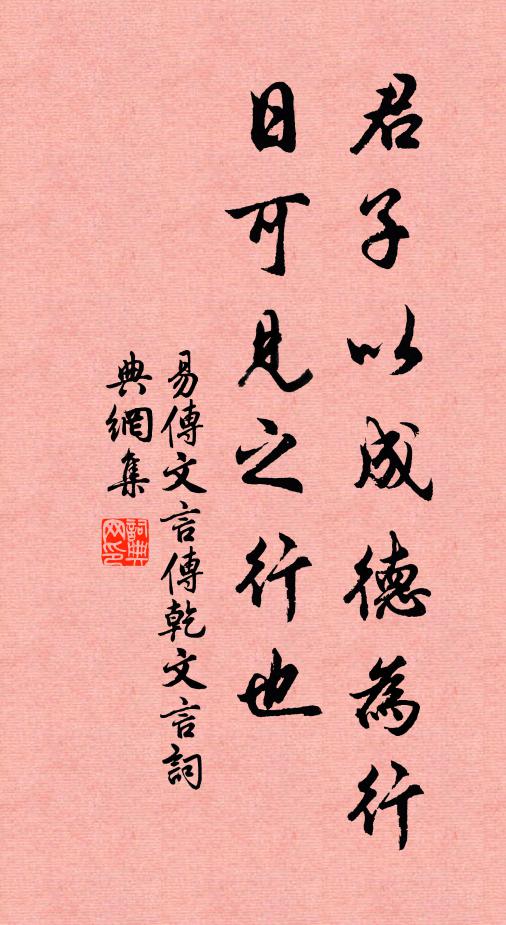 君子以成德為行
日可見之行也
易傳文言傳乾文言詞
典網集
詞典
网印